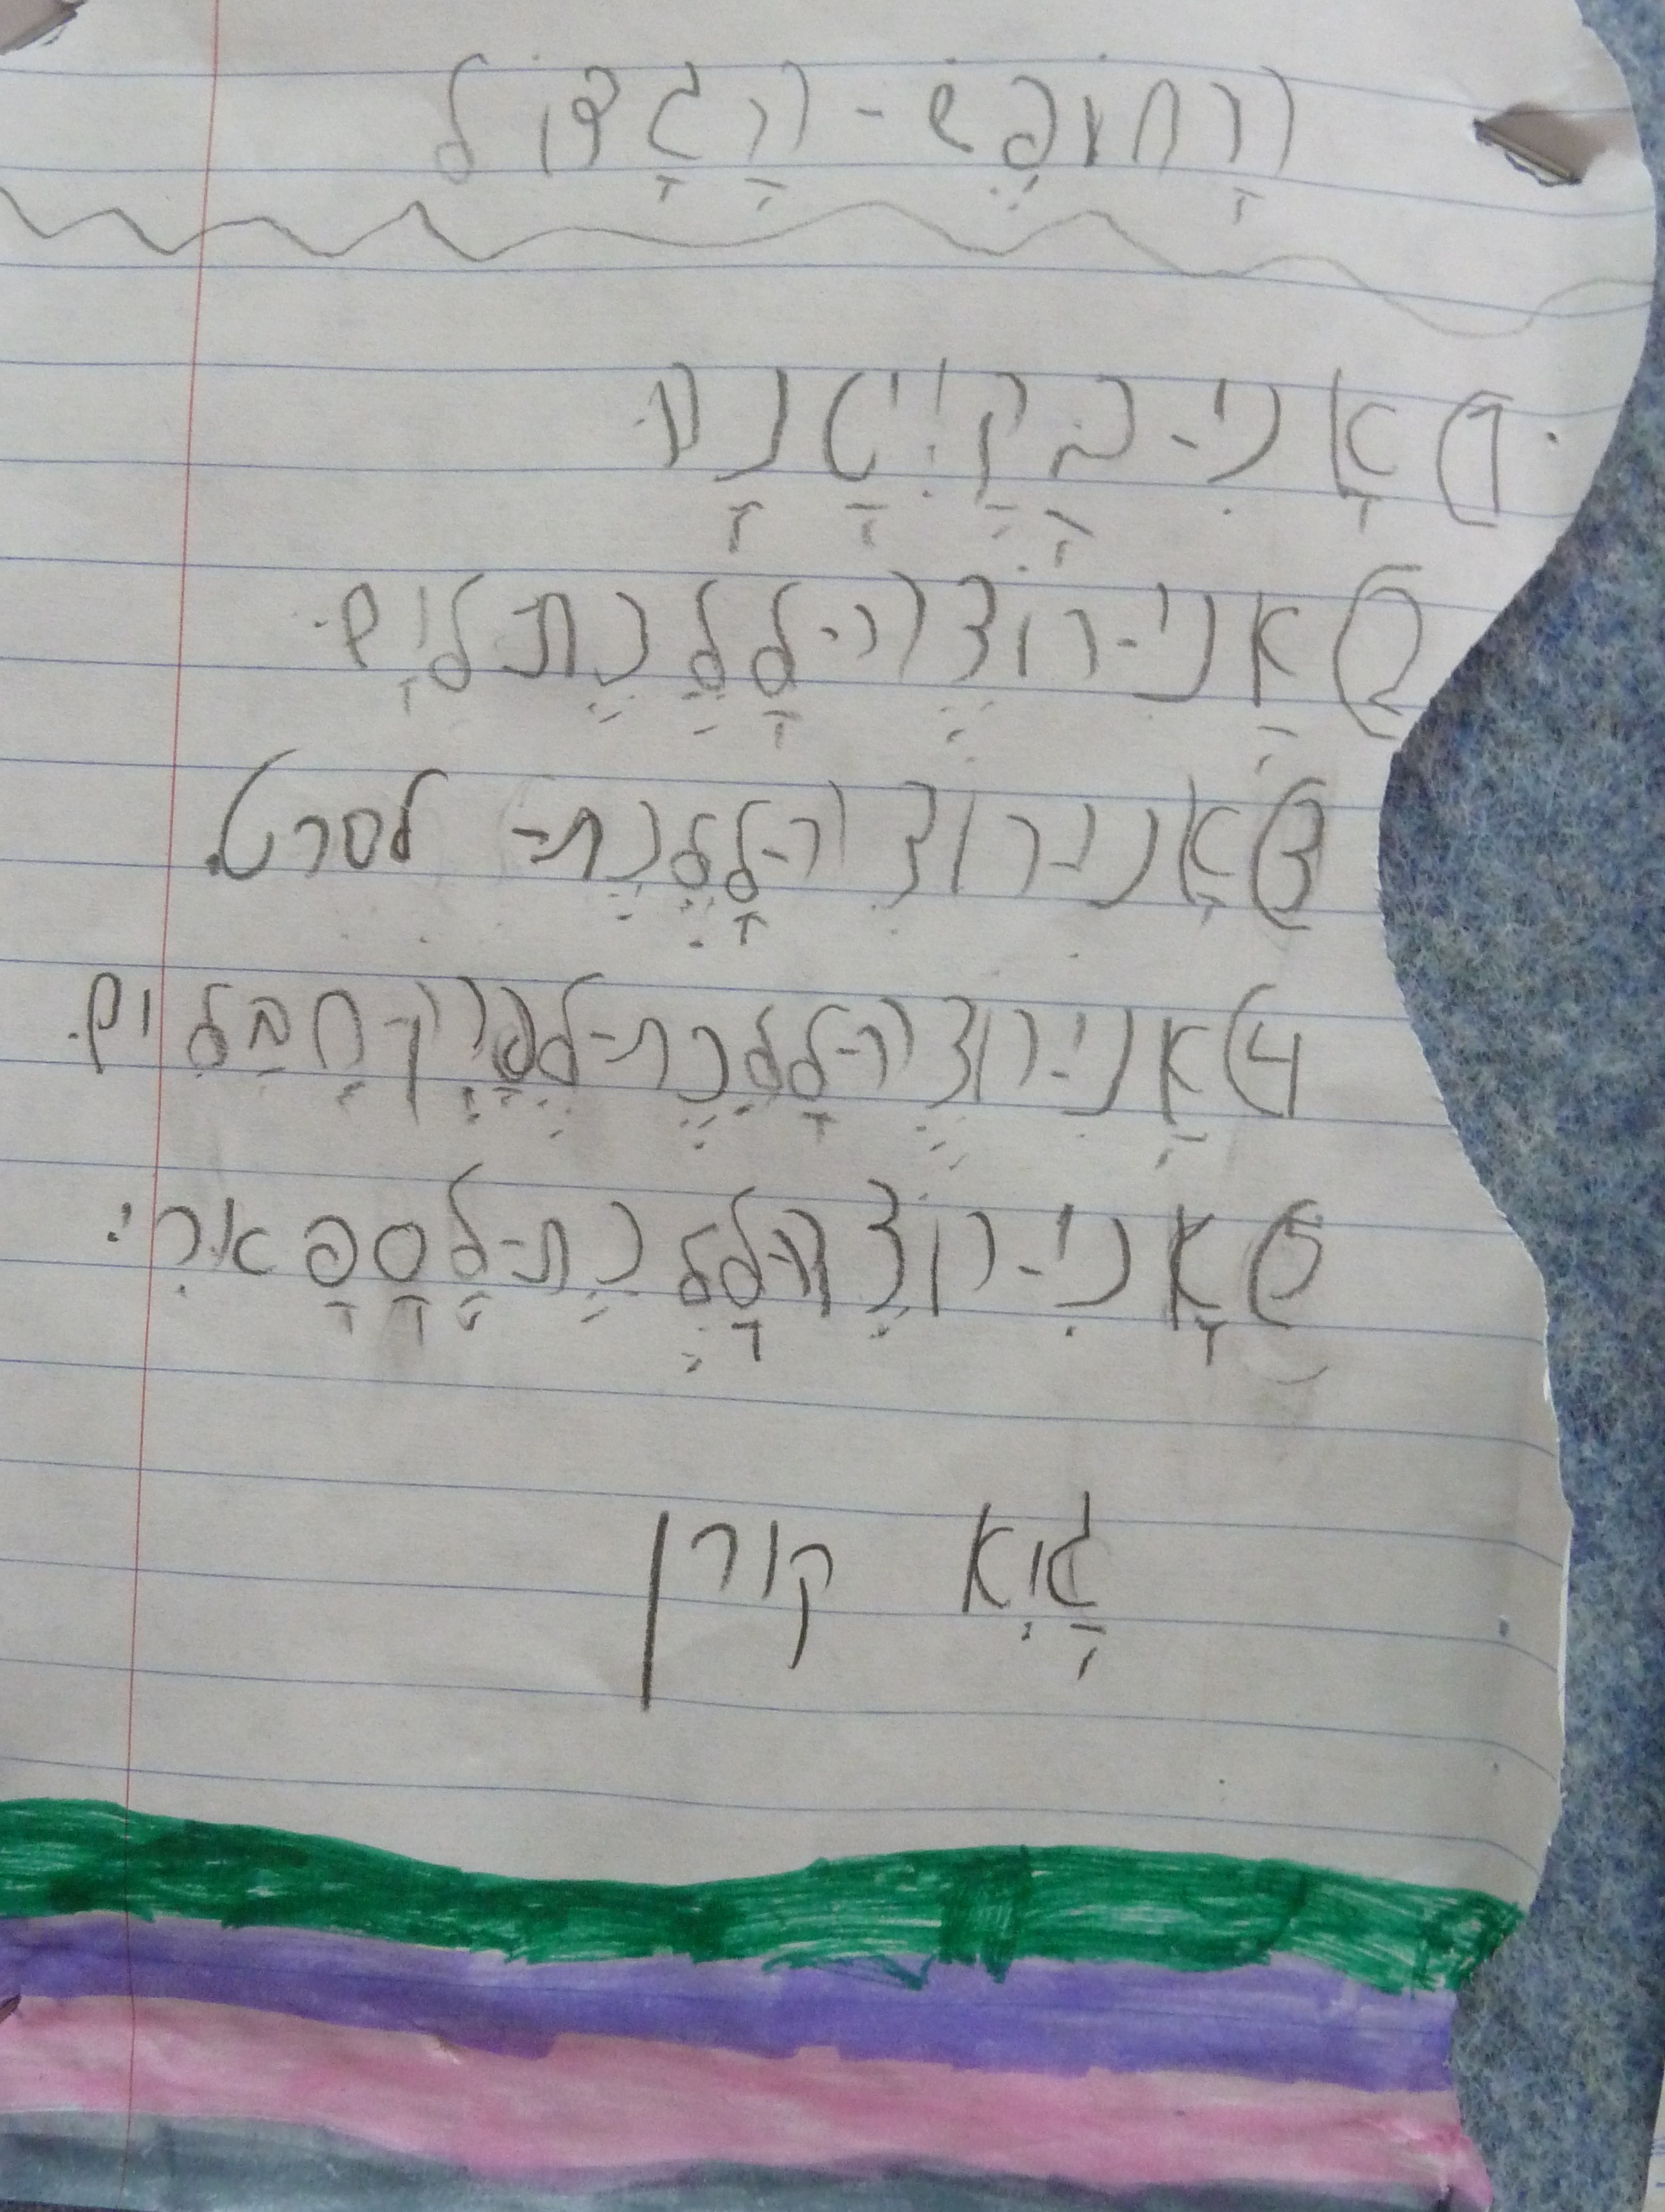 החופש-הגדול
1) אני-בקויטנה.
2) אני-רוצה-ללכת-לים.
3) אני-רוצה-ללכת- לסרט.
4) אני-רוצה-ללכת-לפרק-חבלים.
5) אני-רוצה-ללכת-לספארי.
גיא קורן